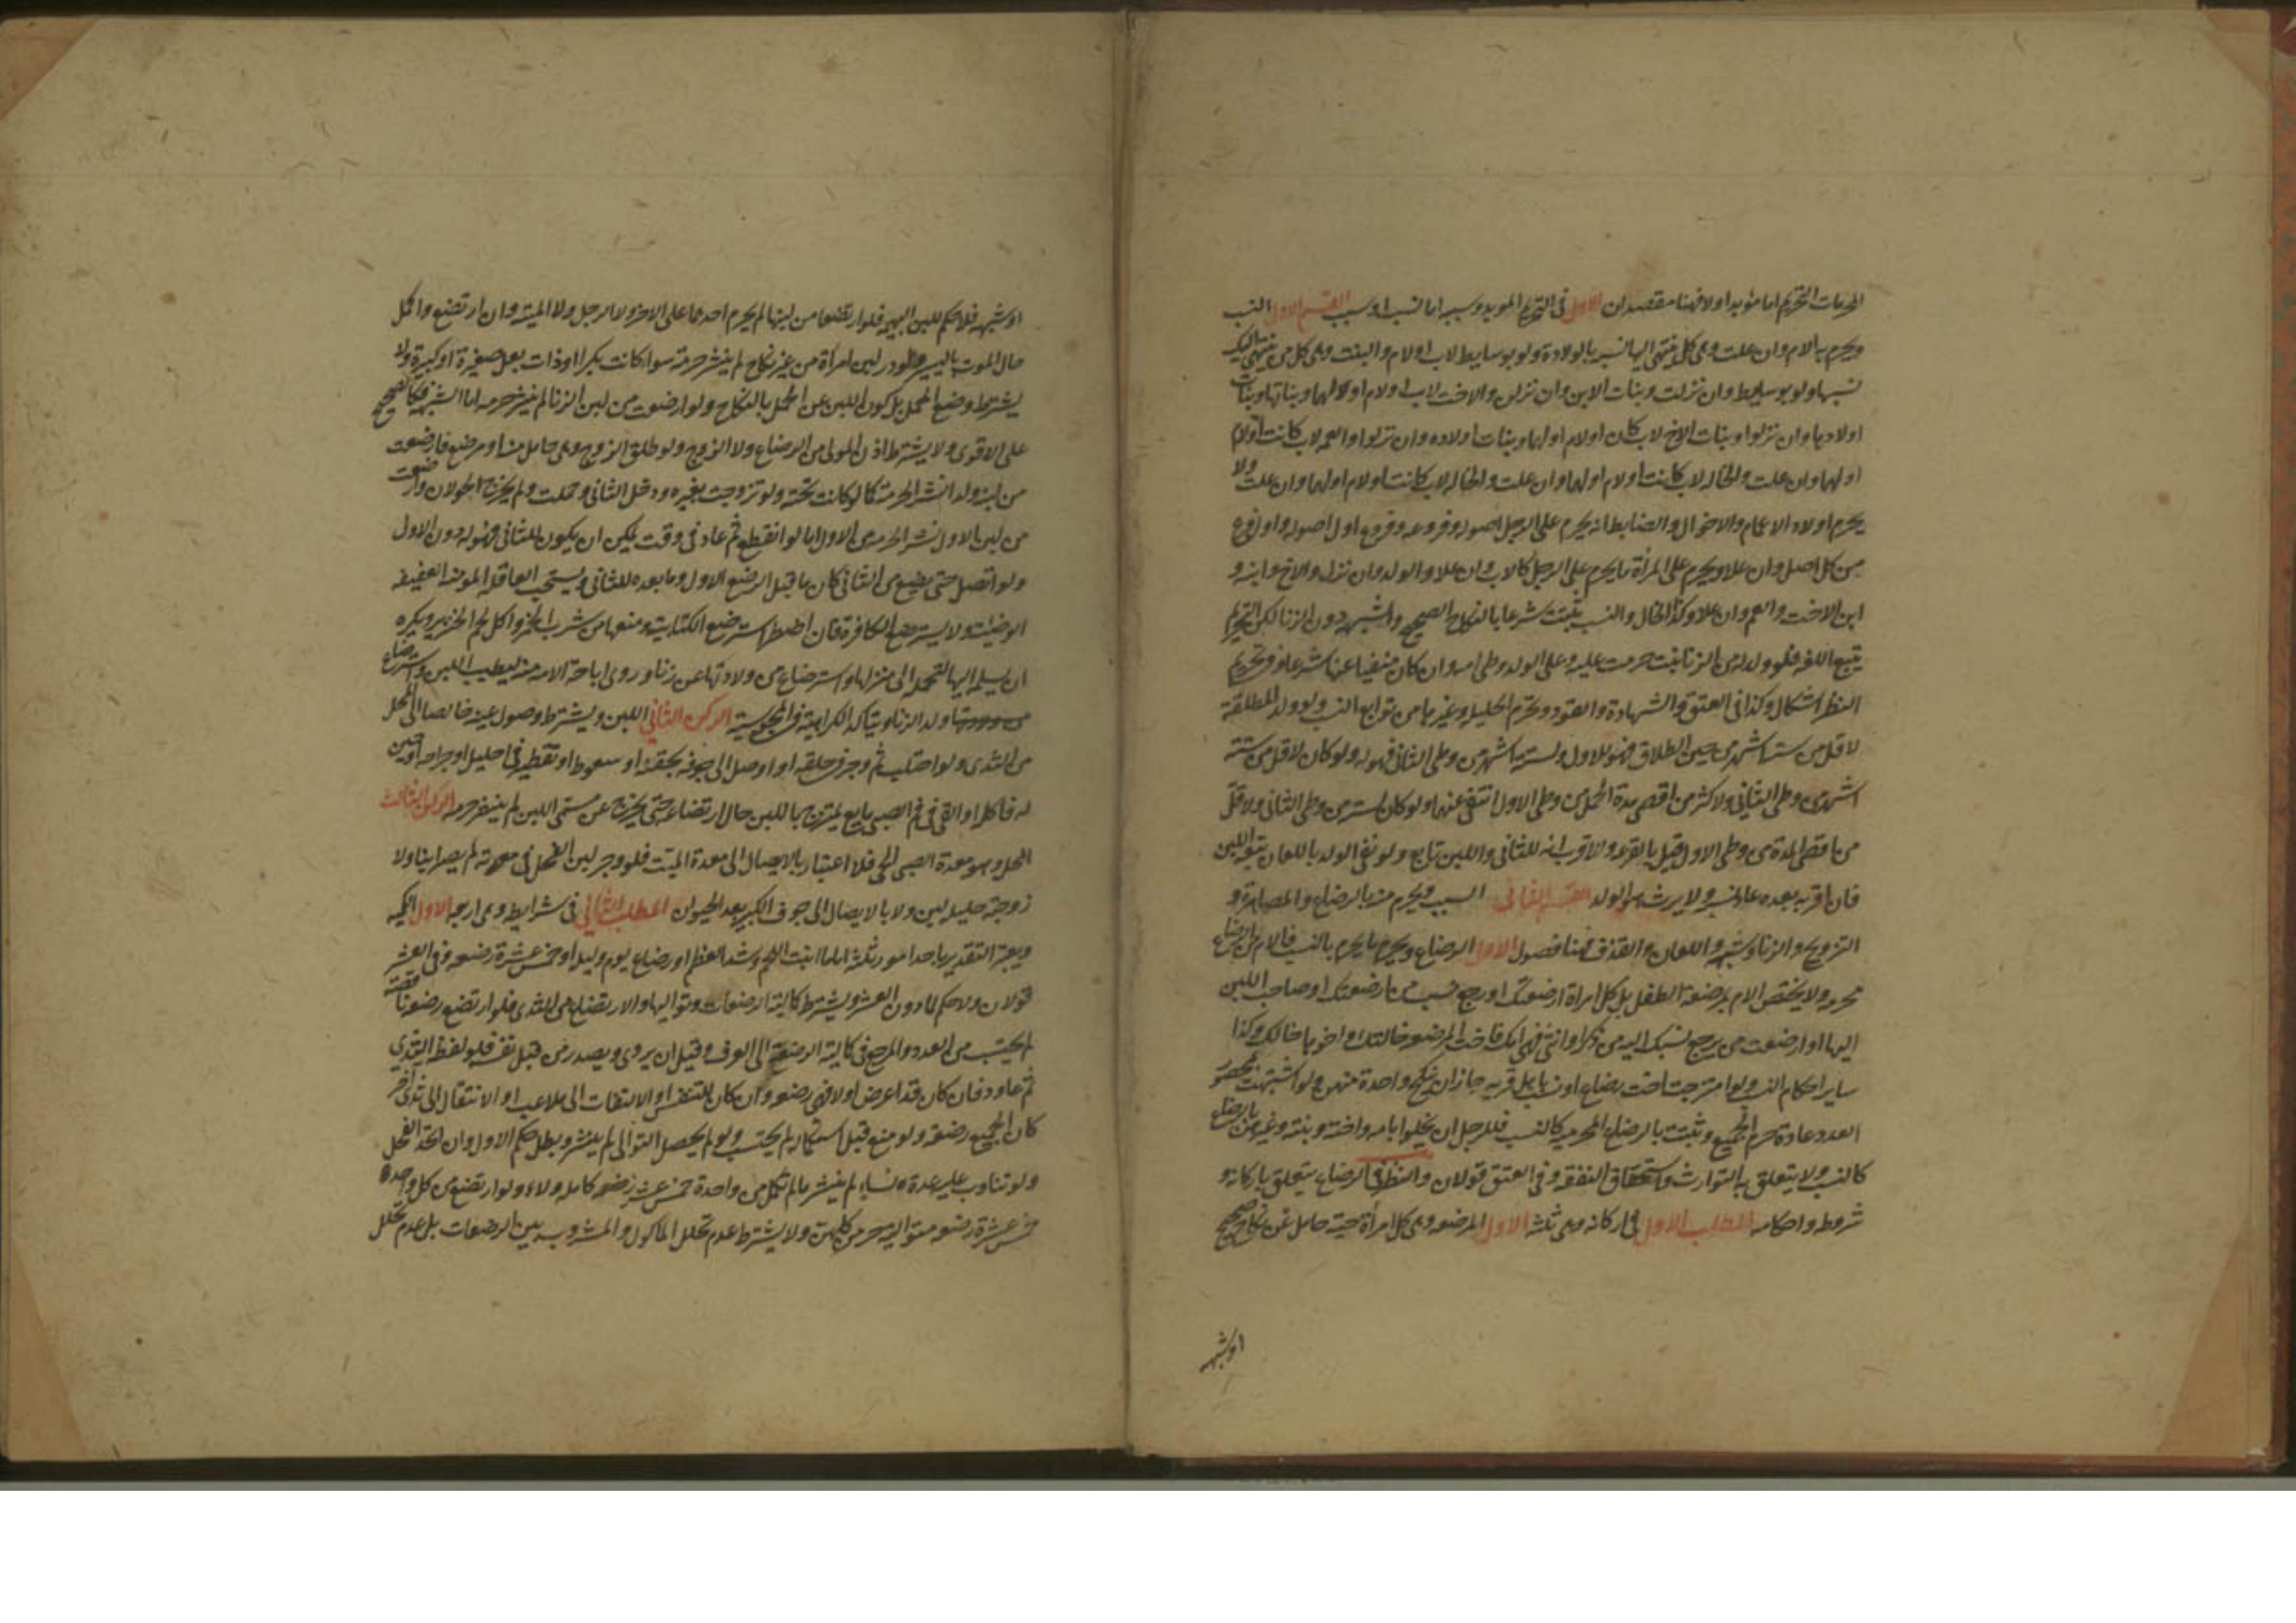 المحرمات التحريم اما مؤبد او لا فهنا مقصدان الاول في التحريم المؤبد وسببه اما نسب او سبب القسم الاول النسب
ويحرم به الام وان علت وهي كل من ينتهي اليها نسبه بالولادة ولو بوسايط لاب او لام والبنت وهي كل من ينتهي اليك
نسبها ولو بوسايط وان نزلت وبنات الابن وان نزلن والاخت لاب او لام او لهما وبناتها وبنات
اولادها وان نزلوا وبنات الاخ لاب كان او لام او لهما وبنات اولاده وان نزلوا والعمة لاب كانت او لام
او لهما وان علت والخالة لاب كانت او لام او لهما وان علت والخالة لاب كانت او لام او لهما وان علت ولا
يحرم اولاد الاعمام والاخوال والضابط انه يحرم على الرجل اصوله وفروعه وفروع اول اصوله واول فرع
من كل اصل وان علا ويحرم على المرأة ما يحرم على الرجل كالاب وان علا والولد وان نزل والاخ وابنه و
ابن الاخت والعم وان علا وكذا الخال والنسب يثبت شرعا بالنكاح الصحيح والشبهة دون الزنا لكن التحريم
يتبع اللغة فلو ولد له من الزنا بنت حرمت عليه وعلى الولد وطى امه وان كان منفيا عنها شرعا وفي تحريم
النظر اشكال وكذا في العتق والشهادة والقود وتحريم الحليلة وغيرها من توابع النسب ولو ولد المطلقة
لاقل من ستة اشهر من حين الطلاق فهو للاول ولستة اشهر من وطى الثاني فهو له ولو كان لاقل من ستة
اشهر من وطى الثاني ولاكثر من اقصى مدة الحمل من وطى الاول انتفى عنهما ولو كان لستة من وطى الثاني ولاقل
من اقصى المدة من وطى الاول قيل بالقرعة والاقرب انه للثاني واللبن تابع ولو نفى الولد باللعان تبعه اللبن
فان اقر به بعده عاد نسبه ولا يرث هو الولد القسم الثاني السبب ويحرم منه بالرضاع والمصاهرة و
التزويج والزنا وشبهه واللعان والقذف فهنا فصول الاول الرضاع ويحرم به ما يحرم بالنسب فالام من الرضاع
محرمة ولا يختص الام بمرضعة الطفل بل كل امراة ارضعتك او رجع نسب من ارضعتك او صاحب اللبن
اليها او ارضعت من يرجع نسبك اليه من ذكر او انثى فهي امك فاخت المرضعة خالتك واخوها خالك وكذا
ساير احكام النسب ولو امتزجت اخت رضاع او نسب باهل قرية جاز ان ينكح واحدة منهن ولو اشتبهت بمحصور
العدد عادة حرم الجميع وتثبت بالرضاع المحرمية كالنسب فللرجل ان يخلو بامه واخته وبنته وغيرهن بالرضاع
كالنسب ولا يتعلق به التوارث واستحقاق النفقة وفي العتق قولان والنظر في الرضاع يتعلق باركانه و
شروطه واحكامه المطلب الاول في اركانه وهي ثلثة الاول المرضعة وهي كل امرأة حية حامل عن نكاح صحيح
او شبهه
او شبهه فلا حكم للبن البهيمة فلو ارتضعا من لبنها لم يحرم احدهما على الاخر ولا الرجل ولا الميتة وان ارتضع واكمل
حال الموت باليسير ولو در لبن امرأة من غير نكاح لم ينشر حرمة سوا كانت بكرا او ذات بعل صغيرة او كبيرة ولا
يشترط وضع الحمل بل كون اللبن عن الحمل بالنكاح ولو ارضعت من لبن الزنا لم ينشر حرمة اما الشبهة فكالصحيح
على الاقوى ولا يشترط اذن المولى في الرضاع ولا الزوج ولو طلق الزوج وهي حامل منه او مرضع فارضعت
من لبنه ولدا نشر الحرمة كما لو كانت تحته ولو تزوجت بغيره ودخل الثاني وحملت ولم يخرج الحولان وارضعت
من لبن الاول نشر الحرمة من الاول اما لو انقطع ثم عاد في وقت يمكن ان يكون للثاني فهو له دون الاول
ولو اتصل حتى يضع من الثاني كان ما قبل الوضع للاول وما بعده للثاني ويستحب العاقلة المؤمنة العفيفة
الوضيئة ولا يسترضع الكافرة فان اضطر استرضع الكتابية ومنعها من شرب الخمر واكل لحم الخنزير ويكره
ان يسلمه اليها لتحمله الى منزلها واسترضاع من ولادتها عن زنا وروى اباحة الامة منه ليطيب اللبن واسترضاع
ولد الزنا ويتأكد الكراهية في المجوسية الركن الثاني اللبن ويشترط وصول عينه خالصا الى المحل
من الثدي ولو احتلب ثم وجر في حلقه او اوصل الى جوفه بحقنة او سعوط او تقطير في احليل او جراحة او جبن
له فاكله او القى في فم الصبي مايع يمتزج باللبن حال ارتضاعه حتى يخرج عن مسمى اللبن لم ينشر حرمة الركن الثالث
المحل وهو معدة الصبي الحي فلا اعتبار بالايصال الى معدة الميت فلو وجر لبن الفحل في معدته لم يصر ابنا ولا
زوجته حليلة ابن ولا بالايصال الى جوف الكبير بعد الحولين المطلب الثاني في شرايطه وهي اربعة الاول الكمية
ويعتبر التقدير باحد امور ثلثة اما ما انبت اللحم وشد العظم او رضاع يوم وليلة او خمس عشرة رضعة وفي العشر
قولان ولا حكم لما دون العشر ويشترط كمالية الرضعات وتواليها والارتضاع من الثدي فلو ارتضع رضعة ناقصة
لم يحتسب من العدد والمرجع في كمالية الرضعة الى العرف وقيل ان يروى ويصدر من قبل نفسه فلو لفظ الثدي
ثم عاود فان كان قد اعرض اولا فهي رضعة وان كان للتنفس او الالتفات الى ملاعب او الانتقال الى ثدي اخر
كان الجميع رضعة ولو منع قبل استكماله لم يحتسب ولو لم يحصل التوالى لم ينشر وبطل حكم الاول وان اتحد الفحل
ولو تناوب عليه عدة نساء لم ينشر ما لم تكمل من واحدة خمس عشرة رضعة كاملة ولاء ولو ارتضع من كل واحدة
خمس عشرة رضعة متوالية حرمن كلهن ولا يشترط عدم تخلل الماكول والمشروب بين الرضعات بل عدم تخلل